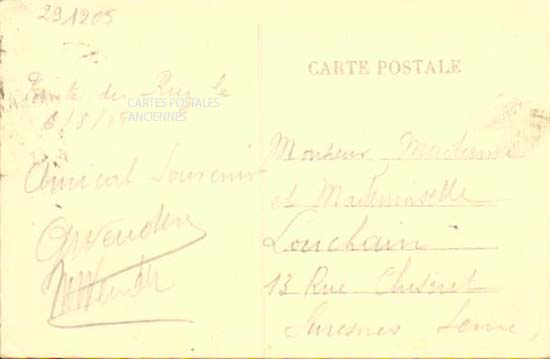 291205
Pointe du Raz le
6/8/
CARTES POSTALES
ANCIENNES
Amical Souvenir
CARTE POSTALE
Monsieur, Madame
et Mademoiselle
Louchain
13 Rue
Suresnes Seine